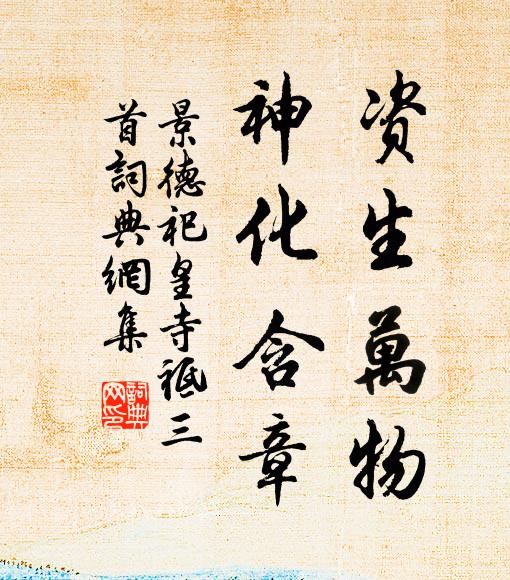 资生萬物
神化含章
景德祀皇寺祗三
首詞典網集
詞典
网印